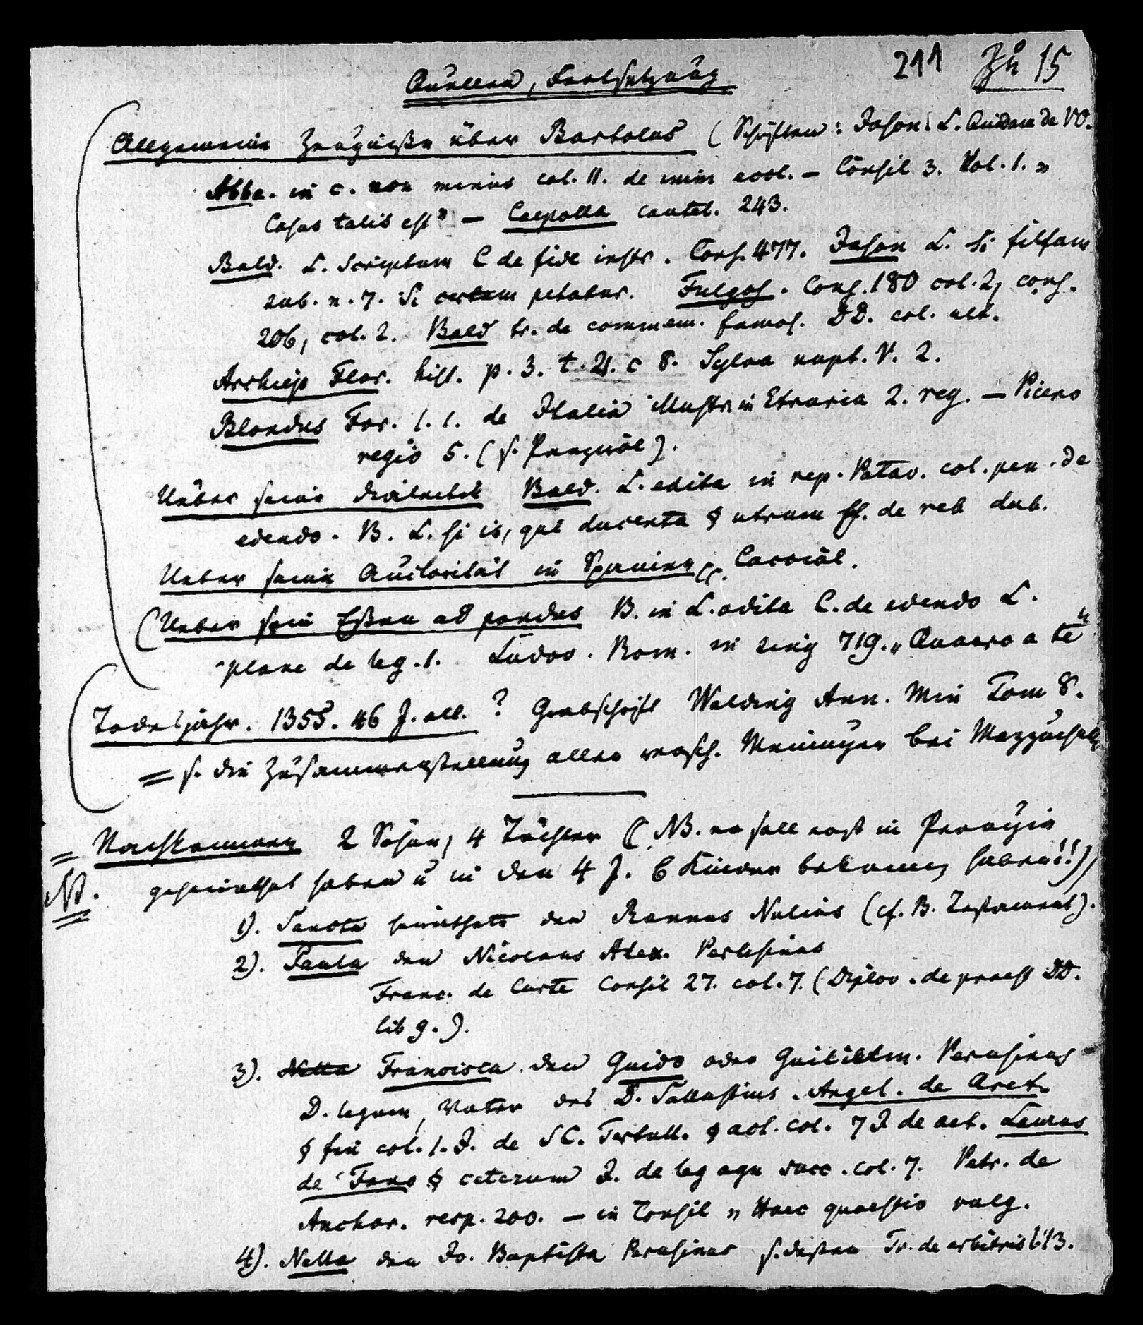 211 Zu 15
Quellen, Fortsetzung
Allgemeine Zeugniße über Bartolus (Schriften: Jason L. quidam de VO.
Abba. in c. non minus col. 11. de imm eccl. – Consil 3. Vol. 1. „
Casus talis est" – Caepolla cautel. 243.
Bald. L. Scriptum C de fide instr. Cons. 477. Jason L. si filfam
sub. n. 7. Si certum petatur. Fulgos. Cons. 180 col. 2, cons.
206, col. 2. Bald tr. de commem. famos. DD. col. ult.
Archiep Flor. hist. p. 3. t. 21. c 8. Sylva nupt. V. 2.
Blondus For. l. 1. de Italia illustr. in Etruria 2. reg. – Piceno
regio 5. (s. Panzirol).
Ueber seine Bald. L. edita in rep. Patav. col. pen. de
edendo. B. L. si is, qui ducenta § utrum ff. de reb dub.
Ueber seine Autorität in Spanien
(Ueber sein Eßen ad pondus B. in L. edita C. de edendo L.
plane de leg. 1. Ludov. Rom. in sing 719. „Quaero a te"
Todesjahr. 1355. 46 J. alt. ? Grabschrift Wadding Ann. Min Tom 8.
= s. die Zusammenstellung aller versch. Meinungen bei Mazzuchelli
= Nachkommen 2 Söhne, 4 Töchter (NB. er soll erst in Perugia
NB. geheirathet haben u in den 4 J. 6 Kinder bekommen haben!!))
1). Sancta heirathete den Rannus Nutius (cf. B. Testament).
2). Paula den Nicolaus Alex. Perusinus
Franc. de Curte Consil 27. col. 7. (Diplov. de praest DD.
lib 9.).
3). Nella Francisca den Guido oder Guilielm. Perusinus
D. legum, Vater des D. Sallustius. Angel. de Aret.
§ fin col. 1. J. de SC. Tertull. § act. col. 7 J de act. Laurus
de Fano § ceterum J. de leg agn succ. col. 7. Petr. de
Anchar. resp. 200. – in Consil „Haec quaestio vulg.
4). Nella den Jo. Baptista Perusinus s. dessen Tr. de arbitris l 13.